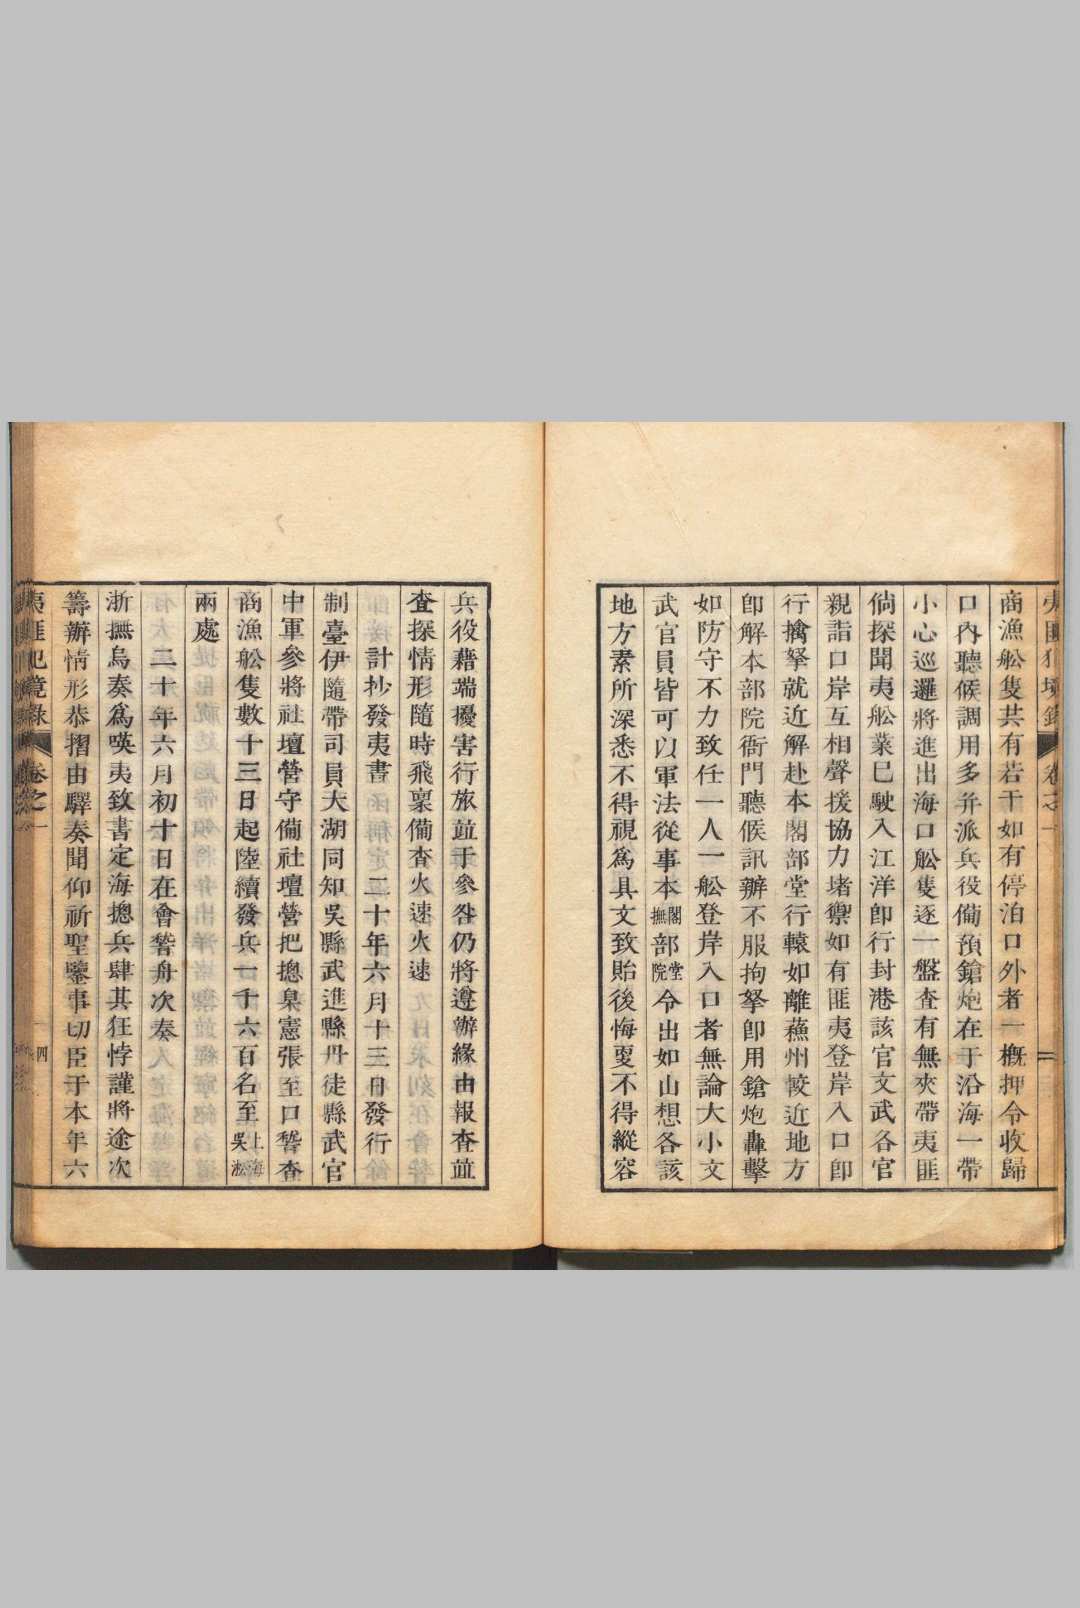 夷匪犯境錄 卷之一
商漁舩隻共有若干如有停泊口外者一槪押令收歸
口內聽候調用多弁派兵役僃預鎗炮在于沿海一帶
小心巡邏將進出海口舩隻逐一盤查有無夾帶夷匪
倘探聞夷舩業已駛入江洋卽行封港該官文武各官
親詣口岸互相聲援協力堵禦如有匪夷登岸入口卽
行擒拏就近解赴本閣部堂行轅如離蘓州較近地方
卽解本部院衙門聽候訊辦不服拘拏卽用鎗炮轟擊
如防守不力致任一人一舩登岸入口者無論大小文
武官員皆可以軍法從事本閣撫部堂院令出如山想各該
地方素所深悉不得視爲具文致貽後悔㪅不得縱容
兵役藉端擾害行旅並于參咎仍將遵辦緣由報查並
查探情形隨時飛稟僃查火速火速
計抄發夷書二十年六月十三日發行
制臺伊隨帶司員大湖同知吳縣武進縣丹徒縣武官
中軍參將社壇營守僃社壇營把摠臬憲張至口督查
商漁舩隻數十三日起陸續發兵一千六百名至上海吳淞
兩處
二十年六月初十日在會督舟次奏
浙撫烏奏爲嘆夷致書定海摠兵肆其狂悖謹將途次
籌辦情形恭摺由驛奏聞仰祈聖鑒事切臣于本年六
夷匪犯境錄 卷之一 四